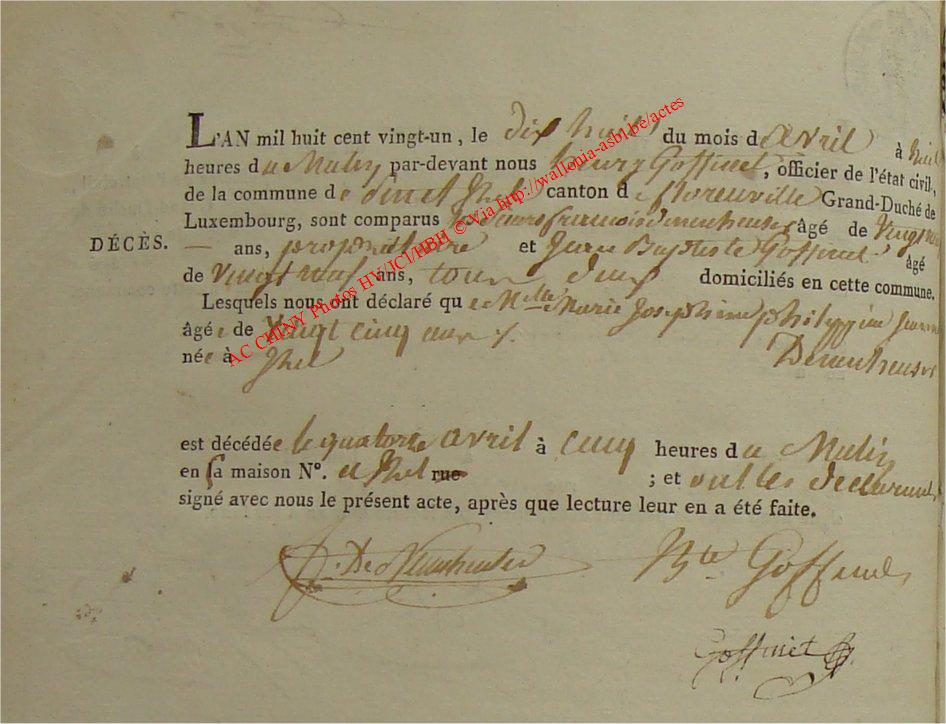 L'AN mil huit cent vingt-un, le dix huit du mois d'avril à huit
heures du Matin par-devant nous henry Goffinet, officier de l'état civil,
de la commune de canton de florenville Grand-Duché de
Luxembourg, sont comparus âgé de Vingt
DÉCÈS.
— ans, propriétaire et Jean Baptiste Goffinet âgé
de Vingt neuf ans, tous deux domiciliés en cette commune.
Lesquels nous ont déclaré que Melle Marie Josephine philippine Jeanne
âgée de Vingt cinq ans
née à Izel
est décédée le quatorze avril à cinq heures du Matin
en sa maison N°. a Izel rue ; et ont les declarants
signé avec nous le présent acte, après que lecture leur en a été faite.
Bte Goffinet
Goffinet
AC CHINY Photos HY/JCI/HBH © Via http://wallonia-asbl.be/actes